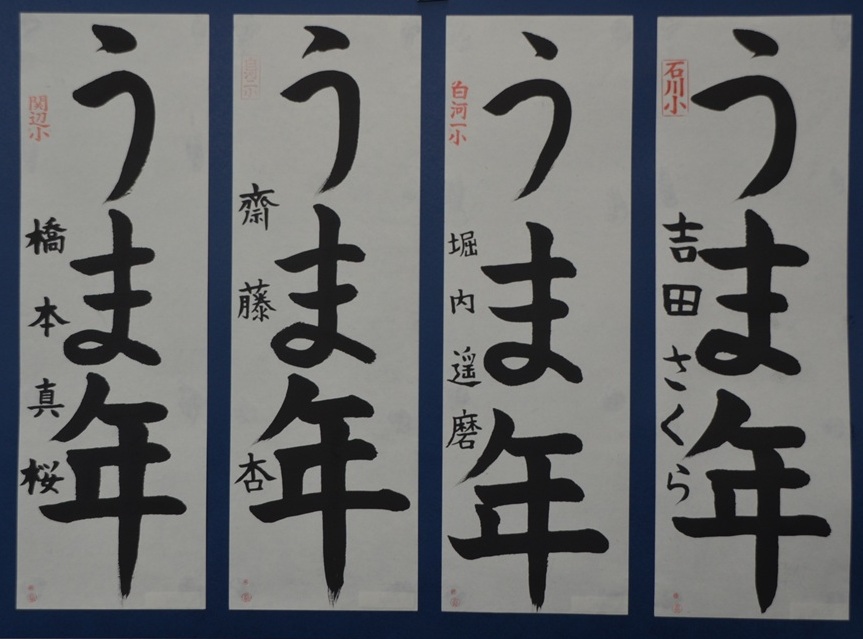 うま年
石川小
吉田さくら
うま年
白河一小
堀内遥磨
うま年
齋藤杏
うま年
関辺小
橋本真桜